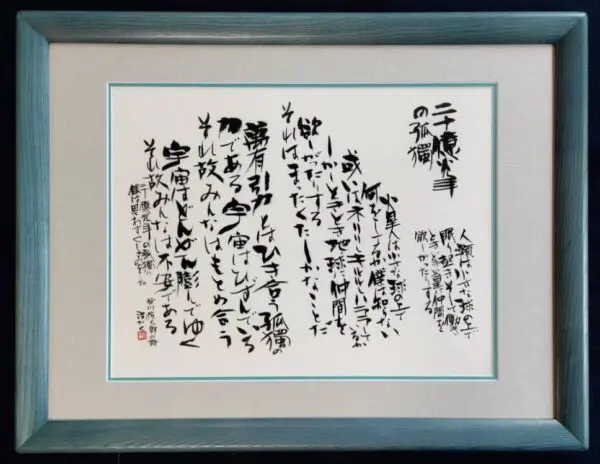 二十億光年
の孤獨
人類は小さな球の上で
眠り起きそして働き
ときどき火星に仲間を
欲しがったりする
火星人は小さな球の上で
何をしてるか僕は知らない
或いはネリリしキルルしハララしているか
しかしときどき地球に仲間を
欲しがったりする
それはまったくたしかなことだ
萬有引力とはひき合う孤獨の
力である宇宙はひずんでいる
それ故みんなはもとめ合う
宇宙はどんどん膨んでゆく
それ故みんなは不安である
二十億光年の孤獨に
僕は思わずくしゃみをした
谷川俊太郎の詩